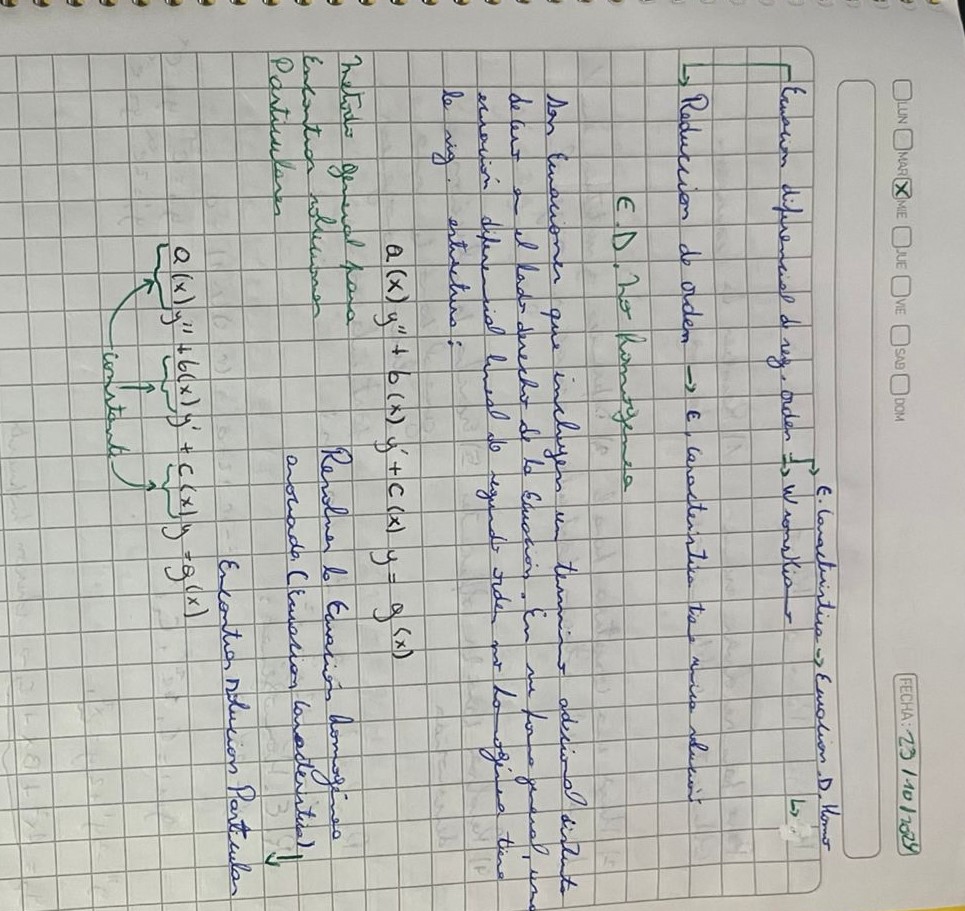 LUN MAR X MIE JUE VIE SAB DOM
FECHA: 23/10/2024
→ E. Caracteristica → Ecuacion. D. Homo
Ecuacion diferencial d seg. orden → Wronskia
↳ Reduccion de orden → E, caracteristica unica solucion
E.D. no homogenea
Son Ecuaciones que incluyen un termino adicional distinto
de cero en el lado derecho de la Ecuación. En su forma general, una
ecuación diferencial lineal de segundo orden no homogénea tiene
la sig. estructura:
a(x) y'' + b(x) y' + c(x) y = g(x)
Metodo general para
Encontrar soluciones
Particulares
Resolver la Ecuación homogénea
asociada. (Ecuacion Caracteristica)
Encontrar solucion Particular
a(x) y'' + b(x) y' + c(x) y = g(x)
constante